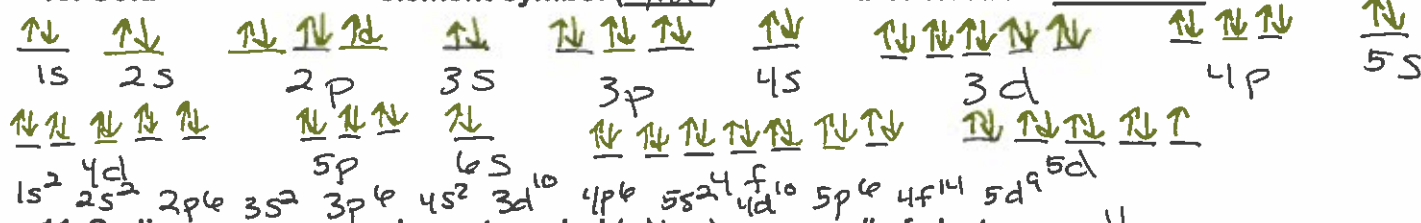 1s 2s 2p 3s 3p 4s 3d 4p 5s
4d 5p 6s 4f 5d
1s² 2s² 2p⁶ 3s² 3p⁶ 4s² 3d¹⁰ 4p⁶ 5s² 4d¹⁰ 5p⁶ 4f¹⁴ 5d⁹